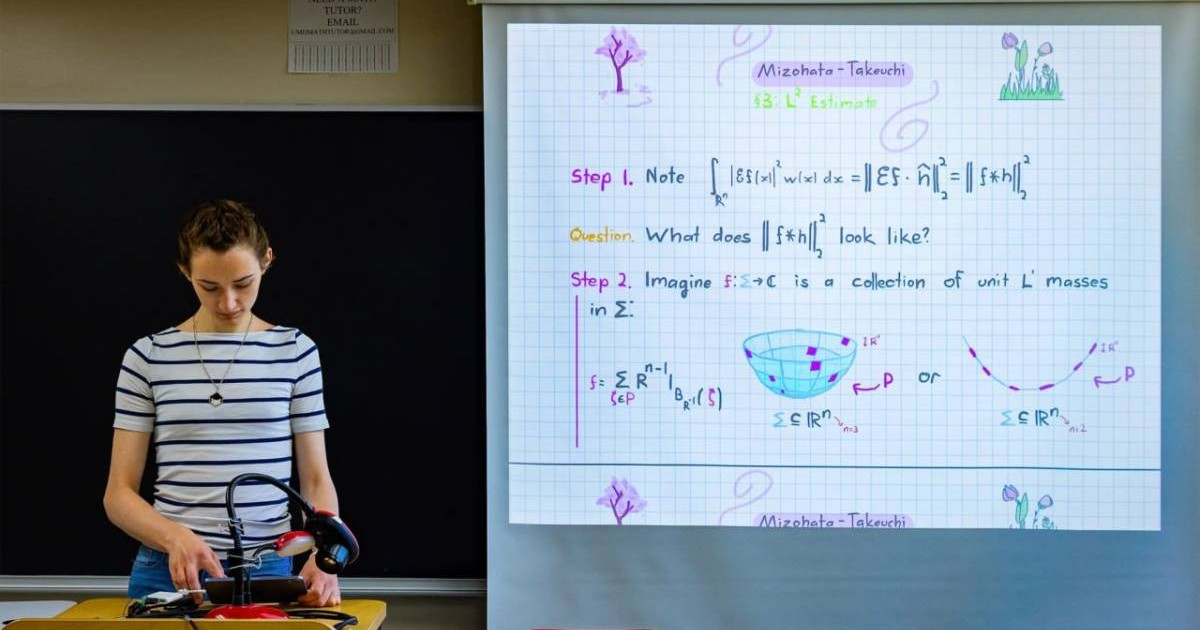 NEED A MATH
TUTOR?
EMAIL
UMDMATHTUTOR@GMAIL.COM
Mizohata - Takeuchi
§3: L² Estimate
Step 1. Note ∫_{ℝⁿ} |Ef(x)|² w(x) dx = ‖Ef · ĥ‖₂² = ‖f*h‖₂²
Question. What does ‖f*h‖₂² look like?
Step 2. Imagine f: Σ → ℂ is a collection of unit L¹ masses
in Σ:
f = Σ_{ζ∈P} R^{n-1} 1_{B_{R^{-1}}(ζ)}
P or P
Σ ⊆ ℝⁿ n=3
Σ ⊆ ℝⁿ n=2
Mizohata - Takeuchi